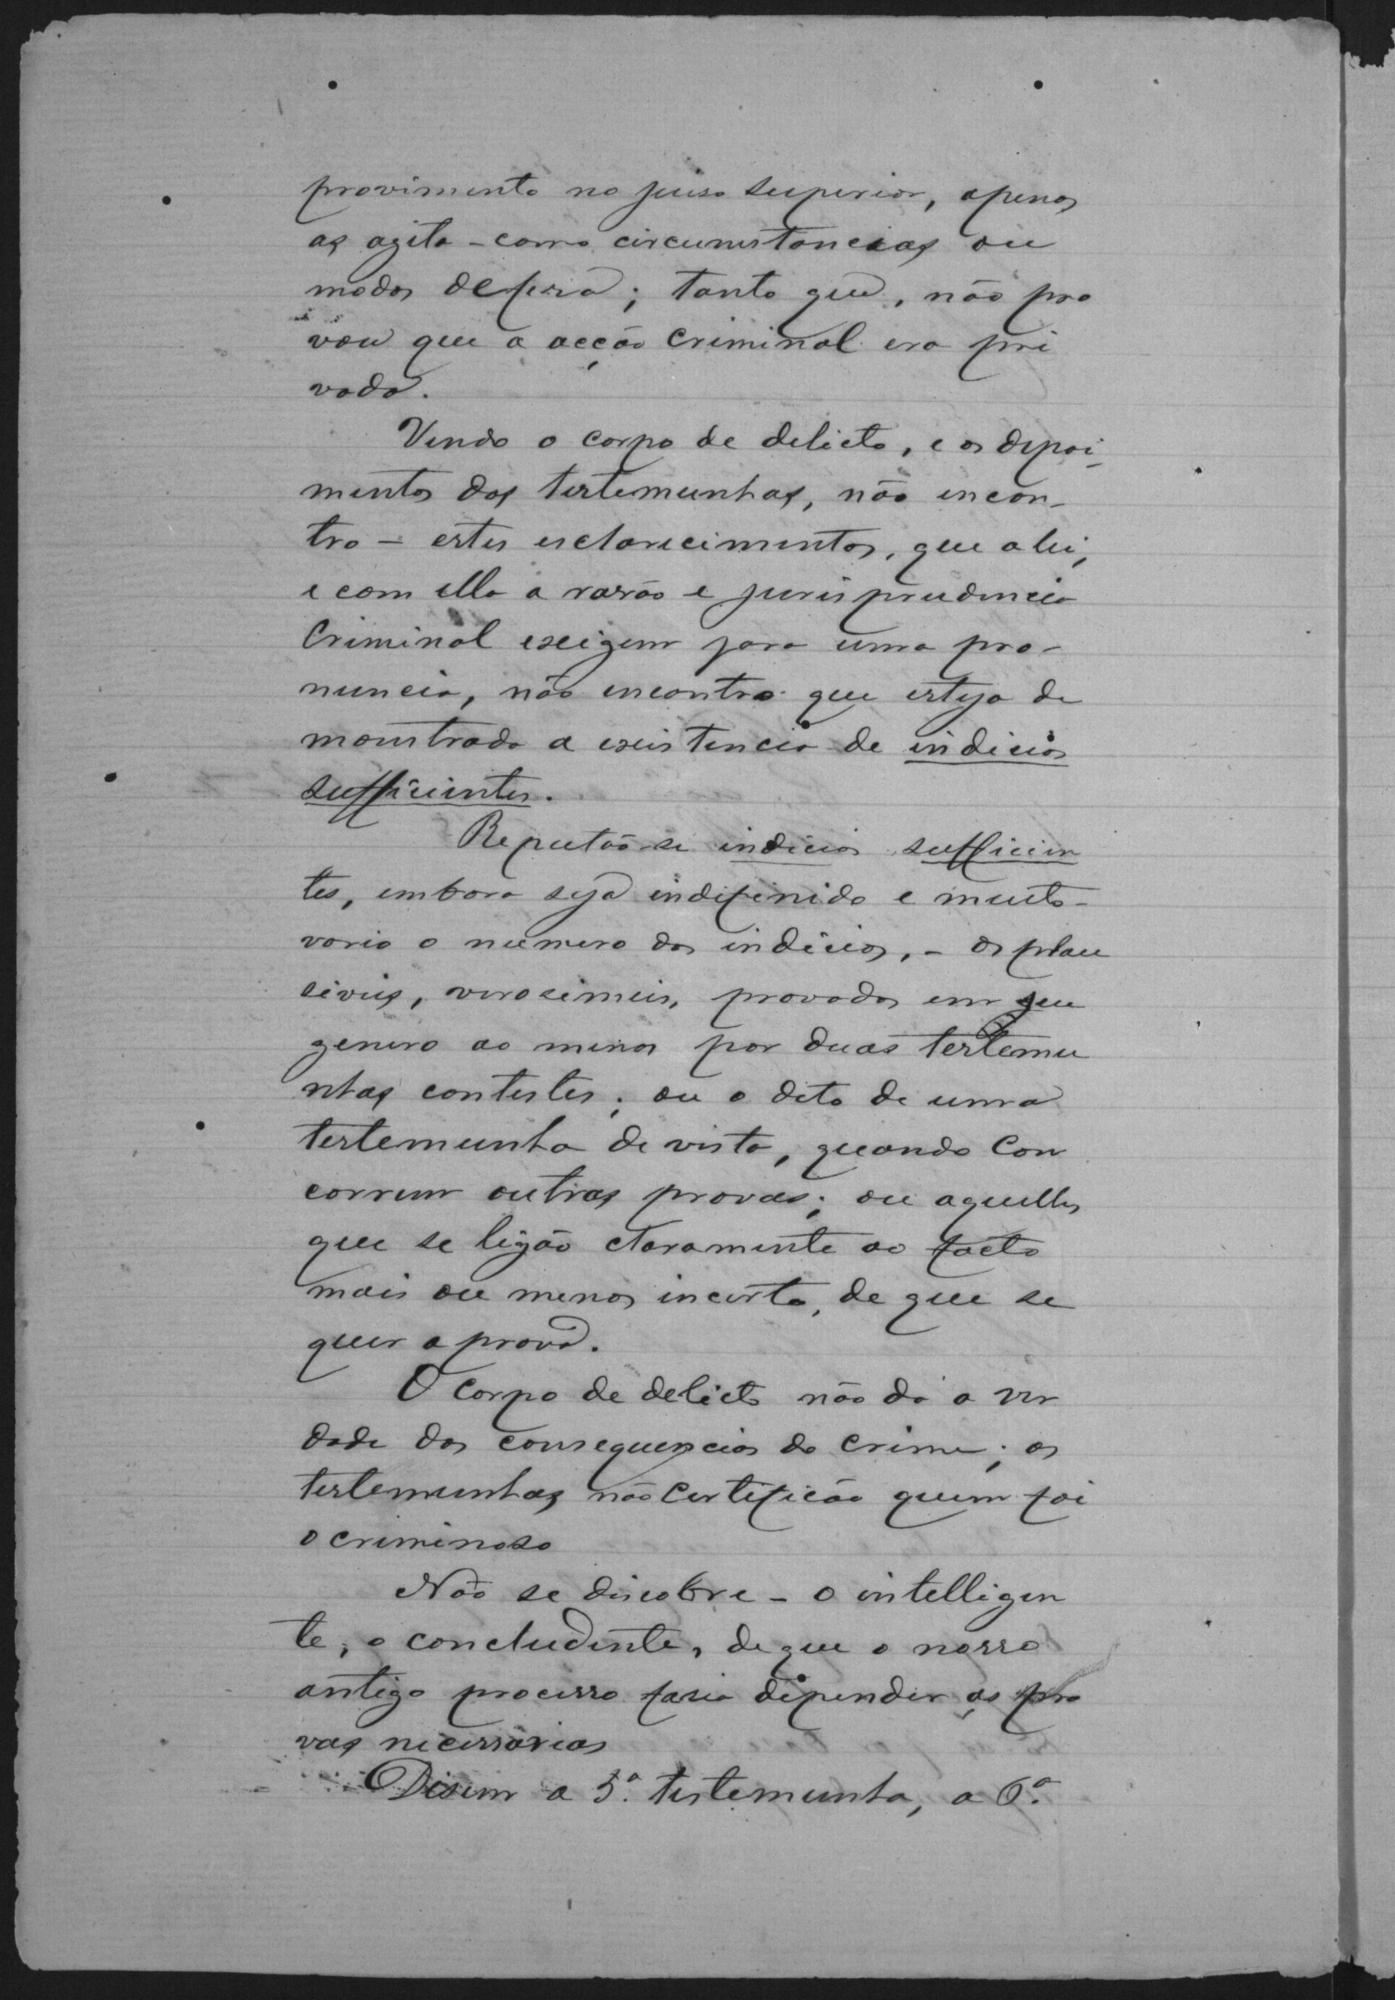 provimento no juiso superior, apenas
as agita - como circumstancias ou
modos defesa; tanto que, não pro
vou que a acção criminal era pri
vada.
Vendo o corpo de delicto, e os depoi-
mentos das testemunhas, não encon-
tro - estes esclarecimentos, que a lei,
e com ella a rasão e jurisprudencia
Criminal exigem para uma pro-
nuncia, não encontro que esteja de
monstrado a existencia de indicios
sufficientes.
Reputão-se indicios sufficien
tes, embora seja indefinido e muito
vario o numero dos indicios, - os plau
siveis, verosimeis, provados em seu
genero ao menos por duas testemu
nhas contestes; ou o dito de uma
testemunha de vista, quando con
correm outras provas; ou aquelles
que se ligão claramente ao facto
mais ou menos incerto, de que se
quer a prova.
O corpo de delicto não dá a ver
dade das consequencias do crime; as
testemunhas não certificão quem foi
o criminoso
Não se discobre - o intelligen
te, o concludente, de que o nosso
antigo processo fasia depender as pro
vas necessarias
Disem a 5ª. testemunha, a 6ª.